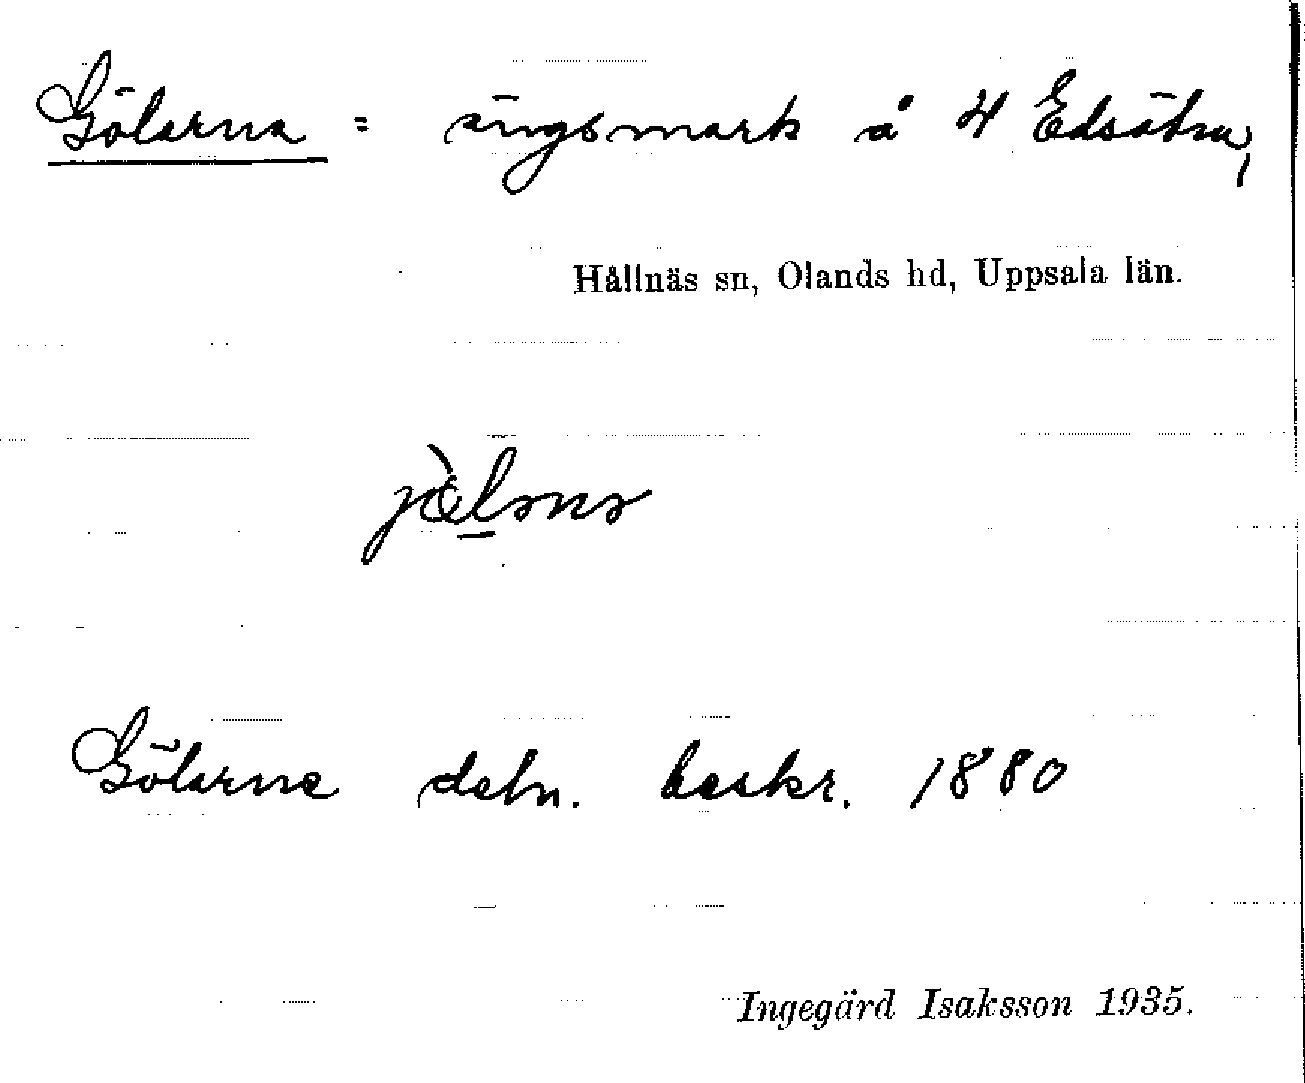 Gölarna = ängsmark å 4 Edsätra,
Hållnäs sn, Olands hd, Uppsala län.
jö̀lɘnɘ
Gölarne debn. beskr. 1880
Ingegärd Isaksson 1935.